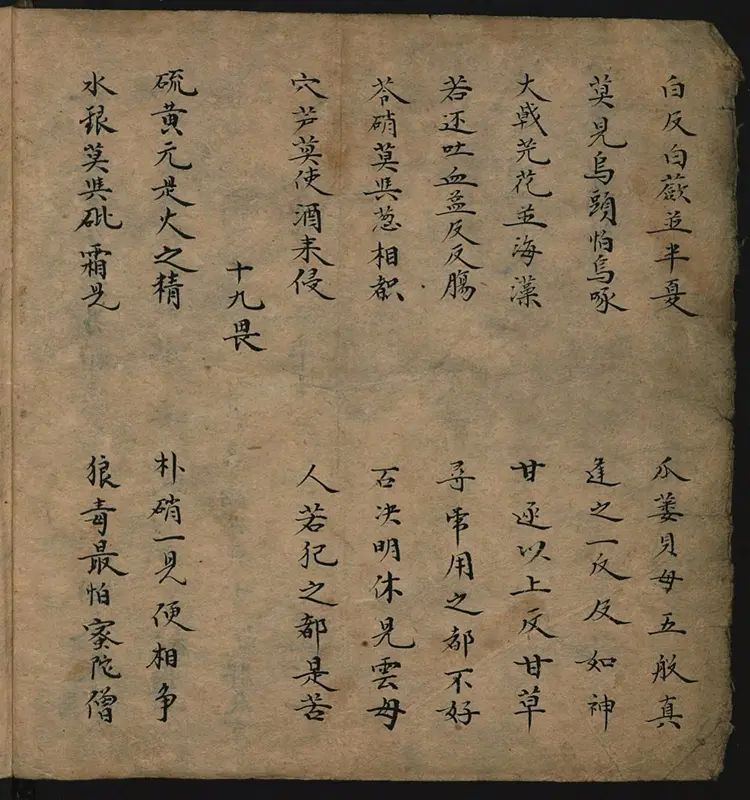 白反白蘞並半夏
瓜蒌貝母五般真
莫見烏頭怕烏啄
逢之一反反如神
大戟芫花並海藻
甘遂以上反甘草
若还吐血益反反腸
尋常用之都不好
苓硝莫與葱相覩
石决明休見雲母
穴芦莫使酒来侵
人若犯之都是苦
十九畏
硫黄元是火之精
朴硝一見便相争
水銀莫與砒霜見
狼毒最怕宻陀僧